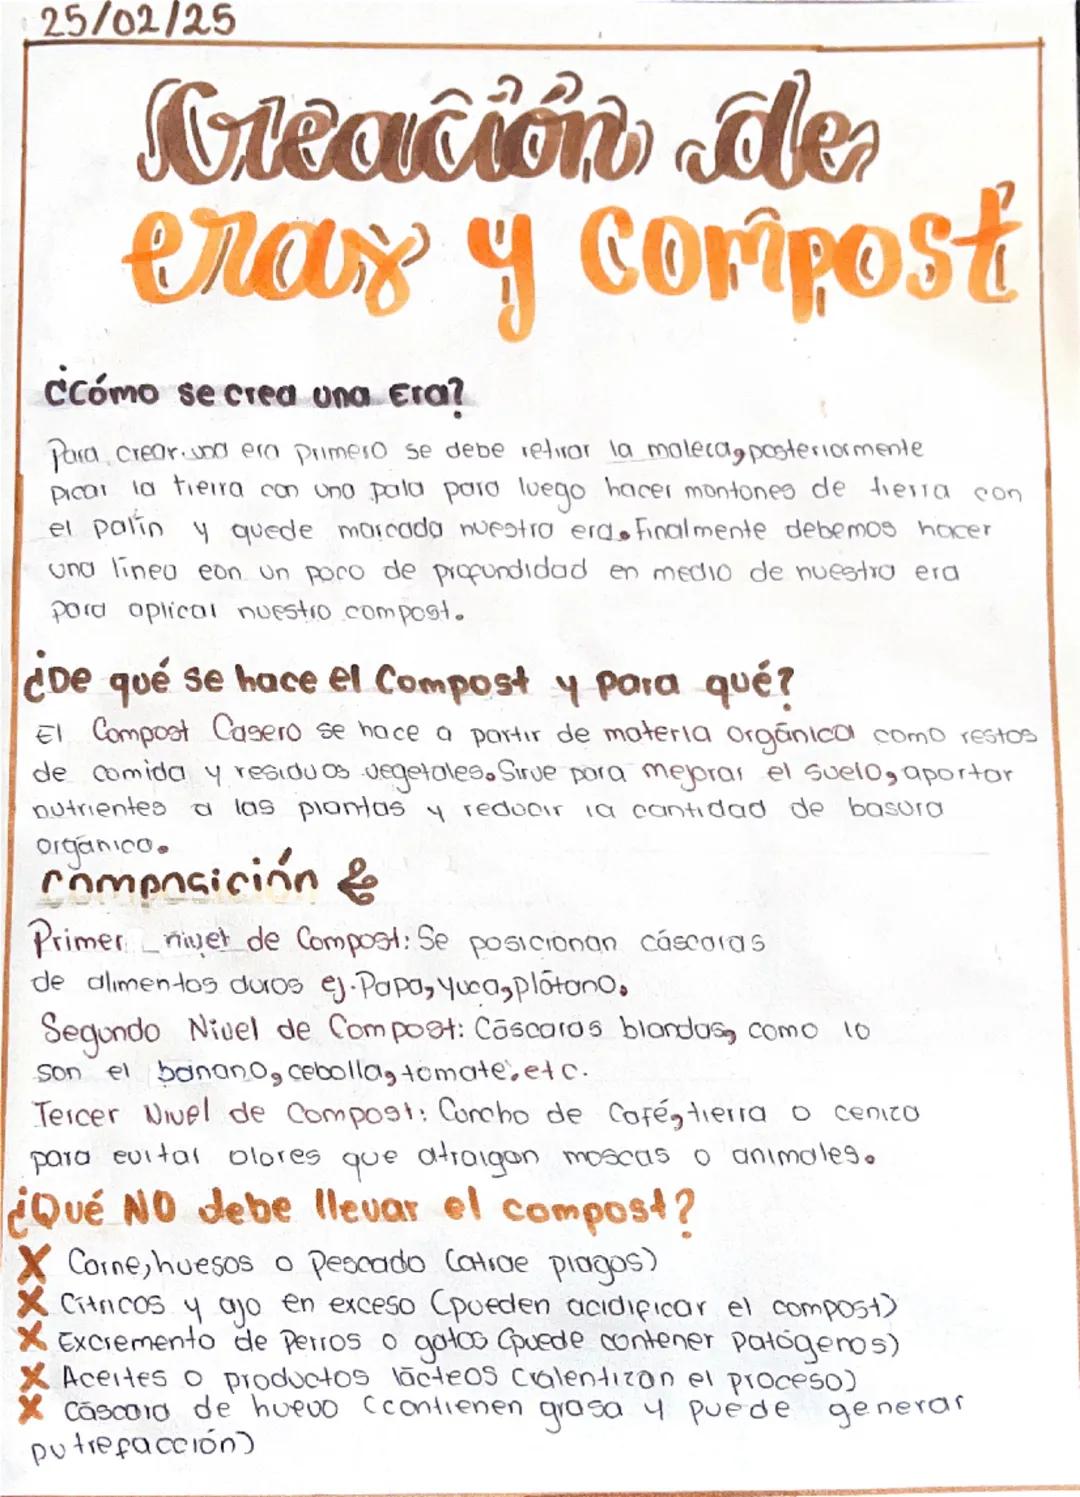 25/02/25
Creación de
eras y compost
¿Cómo se crea una Era?
Para crear una era primero se debe retirar la maleza, posteriormente
picar la tierra con una pala para luego hacer montones de tierra con
el palín y quede marcada nuestra era. Finalmente debemos hacer
una línea con un poco de profundidad en medio de nuestra era
para aplicar nuestro compost.
¿De qué se hace el Compost y para qué?
El Compost Casero se hace a partir de materia orgánica como restos
de comida y residuos vegetales. Sirve para mejorar el suelo, aportar
nutrientes a las plantas y reducir la cantidad de basura
orgánica.
composición
Primer nivel de Compost: Se posicionan cáscaras
de alimentos duros ej. Papa, yuca, plátano.
Segundo Nivel de Compost: Cáscaras blandas, como lo
son el banano, cebolla, tomate, etc.
Tercer Nivel de Compost: Cuncho de Café, tierra o ceniza
para evitar olores que atraigan moscas o animales.
¿Qué NO debe llevar el compost?
X Carne, huesos o Pescado (atrae plagas)
X Cítricos y ajo en exceso (pueden acidificar el compost)
X Excremento de Perros o gatos (puede contener patógenos)
X Aceites o productos lácteos (ralentizan el proceso)
X Cáscara de huevo (contienen grasa y puede generar
putrefacción)